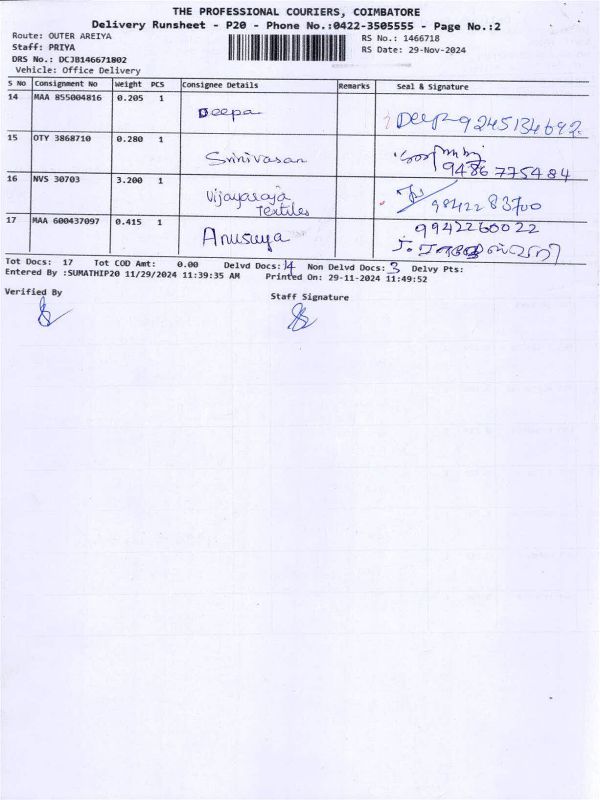 THE PROFESSIONAL COURIERS, COIMBATORE
Delivery Runsheet - P20 - Phone No.:0422-3505555 - Page No.:2
Route: OUTER AREIYA
RS No.: 1466718
Staff: PRIYA
RS Date: 29-Nov-2024
DRS No.: DCJB146671802
Vehicle: Office Delivery
S No Consignment No Weight PCS Consignee Details Remarks Seal & Signature
14 MAA 855004816 0.205 1 Deepa Deepa 9245134692
15 OTY 3868710 0.280 1 Srinivasan 9486775484
16 NVS 30703 3.200 1 Vijayaraja Textiles 9842283700
17 MAA 600437097 0.415 1 Anusuya 9942260022
Tot Docs: 17 Tot COD Amt: 0.00 Delvd Docs: 14 Non Delvd Docs: 3 Delvy Pts:
Entered By :SUMATHIP20 11/29/2024 11:39:35 AM Printed On: 29-11-2024 11:49:52
Verified By
Staff Signature